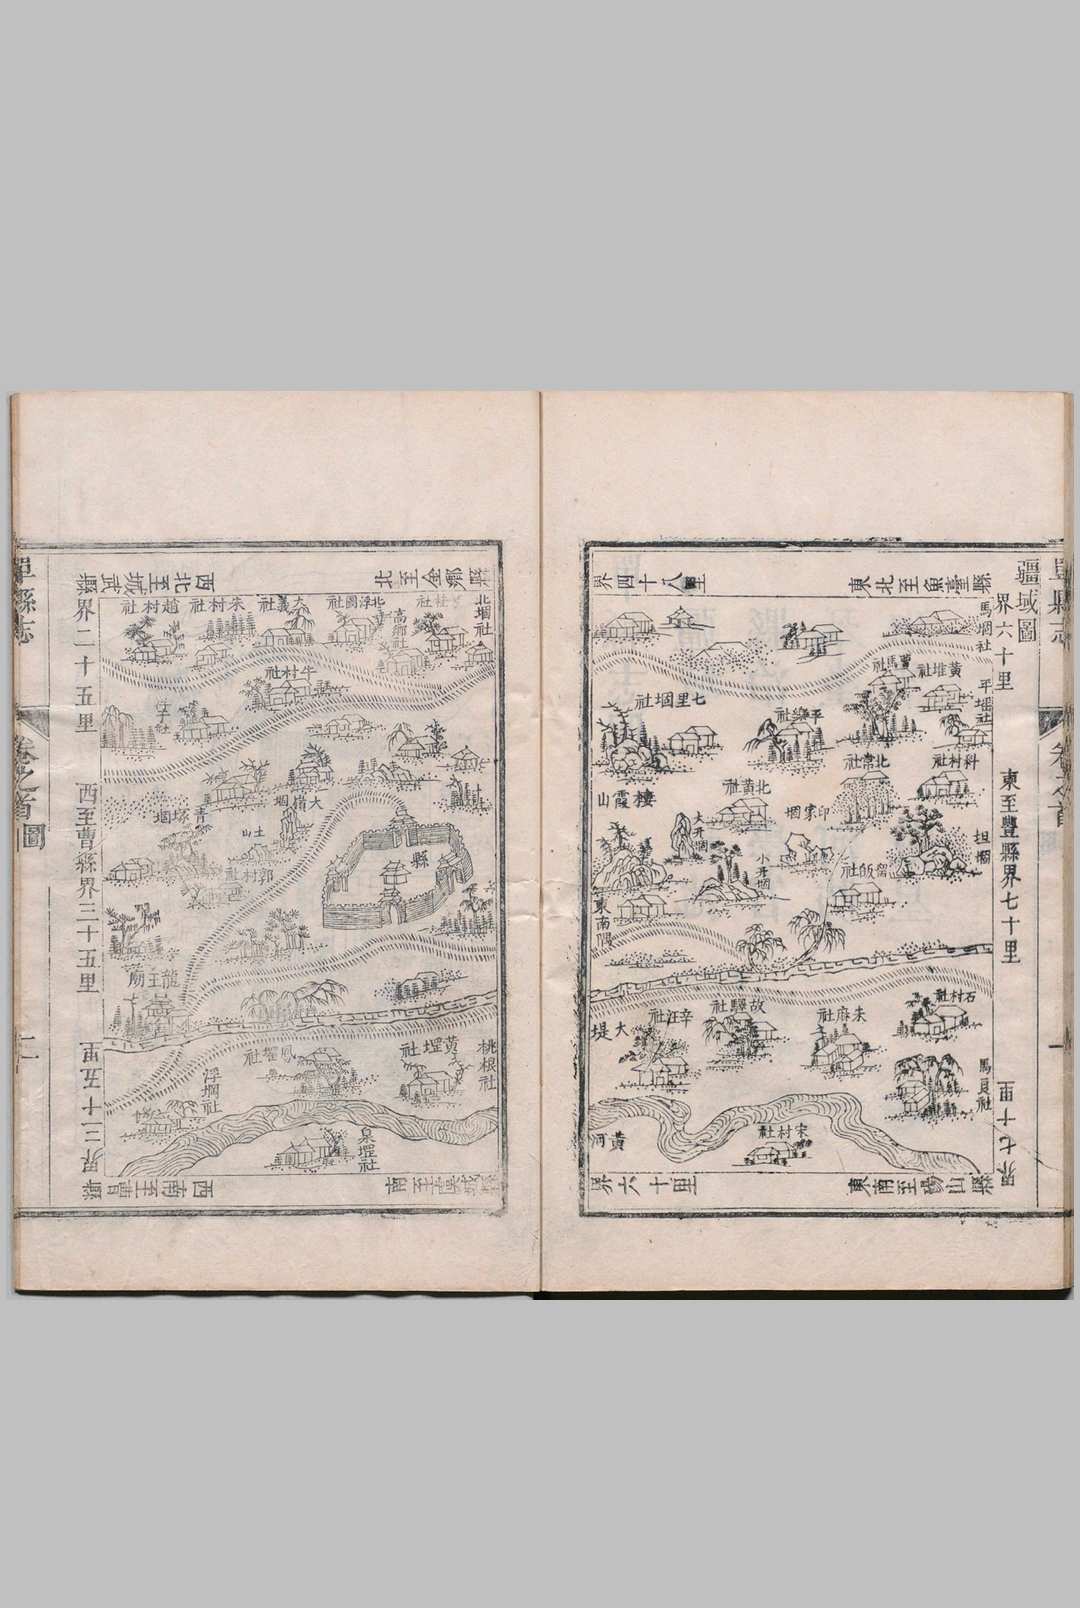 單縣志
疆域圖
東北至魚臺縣
界六十里
東至豐縣界七十里
東南至碭山縣
界七十里
北至金鄉縣
界四十八里
馬堌社
黃堆社
平堌社
七里堌社
科村社
北常社
北黃社
棲霞山
印家堌
大升堌
小升堌
坦堌
留飯社
東南隅
石村社
朱麻社
故驛社
辛汪社
大堤
馬良社
宋村社
黃河
界六十里
單縣志
卷之首
圖
二
西北至城武縣
界二十五里
西至曹縣界三十五里
西南至曹縣
界三十五里
南至虞城縣
北堌社
杜社
高鄉社
北浮圖社
大義社
朱村社
趙村社
牛村社
大嶺堌
青塚堌
土山
郭村社
縣
龍王廟
桃根社
黃堽社
浮堌社
泉堽社